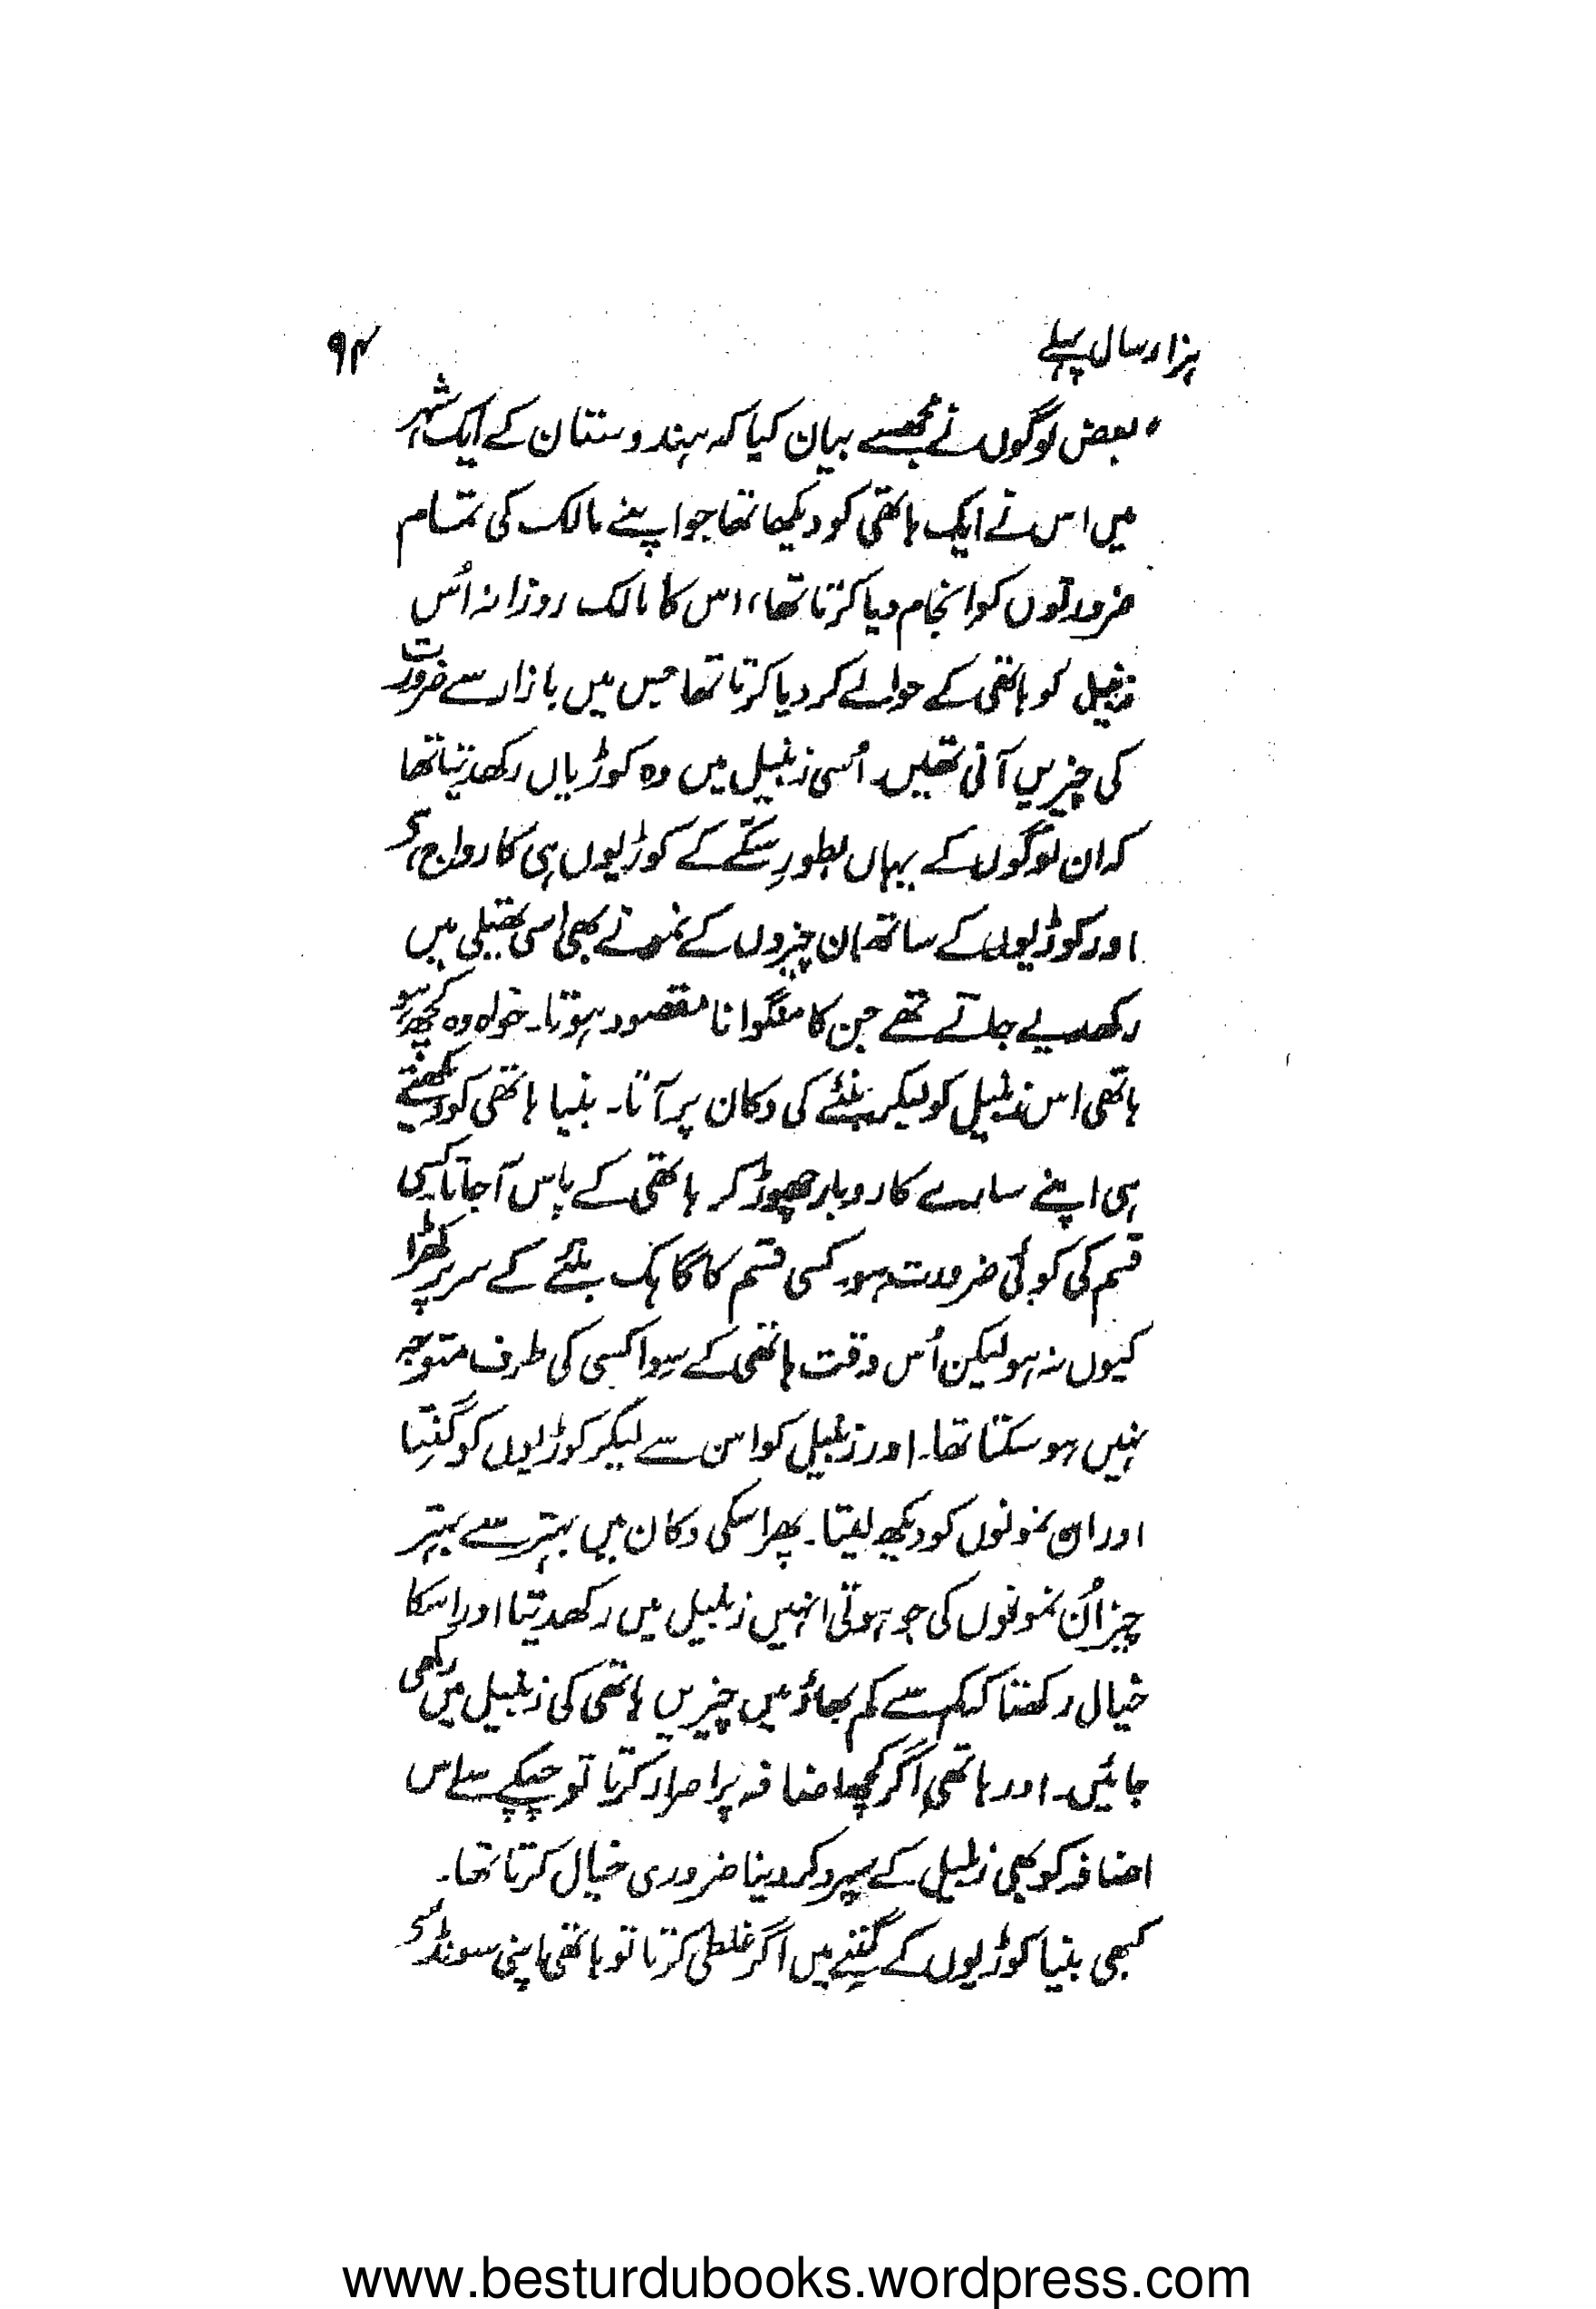 ہزار سال پہلے
۹۴
"بعض لوگوں نے مجھسے بیان کیا کہ ہندوستان کے ایک شہر
میں اس نے ایک ہاتھی کو دیکھا تھا جو اپنے مالک کی تمام
ضرورتوں کو انجام دیا کرتا تھا، اس کا مالک روزانہ اُس
زنبیل کو ہاتھی کے حوالے کر دیا کرتا تھا جس میں بازار سے ضرورت
کی چیزیں آتی تھیں۔ اُسی زنبیل میں وہ کوڑیاں رکھدیتا تھا
کہ ان لوگوں کے یہاں بطورِ سکّے کے کوڑیوں ہی کا رواج ہے
اور کوڑیوں کے ساتھ ان چیزوں کے نمونے بھی اسی تھیلی میں
رکھدیے جاتے تھے جن کا منگوانا مقصود ہوتا۔ خواہ وہ کچھ ہو
ہاتھی اس زنبیل کو لیکر بنئے کی دکان پر آتا۔ بنیا ہاتھی کو دیکھتے
ہی اپنے سارے کاروبار چھوڑ کر ہاتھی کے پاس آجاتا کسی
قسم کی کوئی ضرورت ہو۔ کسی قسم کا گاہک بنئے کے سر پر کھڑا
کیوں نہ ہو لیکن اُس وقت ہاتھی کے سِوا کسی کی طرف متوجہ
نہیں ہو سکتا تھا۔ اور زنبیل کو اس سے لیکر کوڑیوں کو گنِتا
اور ان نمونوں کو دیکھ لیتا۔ پھر اسکی دکان میں بہتر سے بہتر
چیز اُن نمونوں کی جو ہوتی انہیں زنبیل میں رکھدیتا اور اسکا
خیال رکھتا کہ کم سے کم بھاؤ میں چیزیں ہاتھی کی زنبیل میں رکھی
جائیں۔ اور ہاتھی اگر کچھ اضافہ پر اصرار کرتا تو چپکے سے اس
اضافہ کو بھی زنبیل کے سپرد کر دینا ضروری خیال کرتا تھا۔
کبھی بنیا کوڑیوں کے گننے میں اگر غلطی کرتا تو ہاتھی اپنی سونڈ سے
www.besturdubooks.wordpress.com